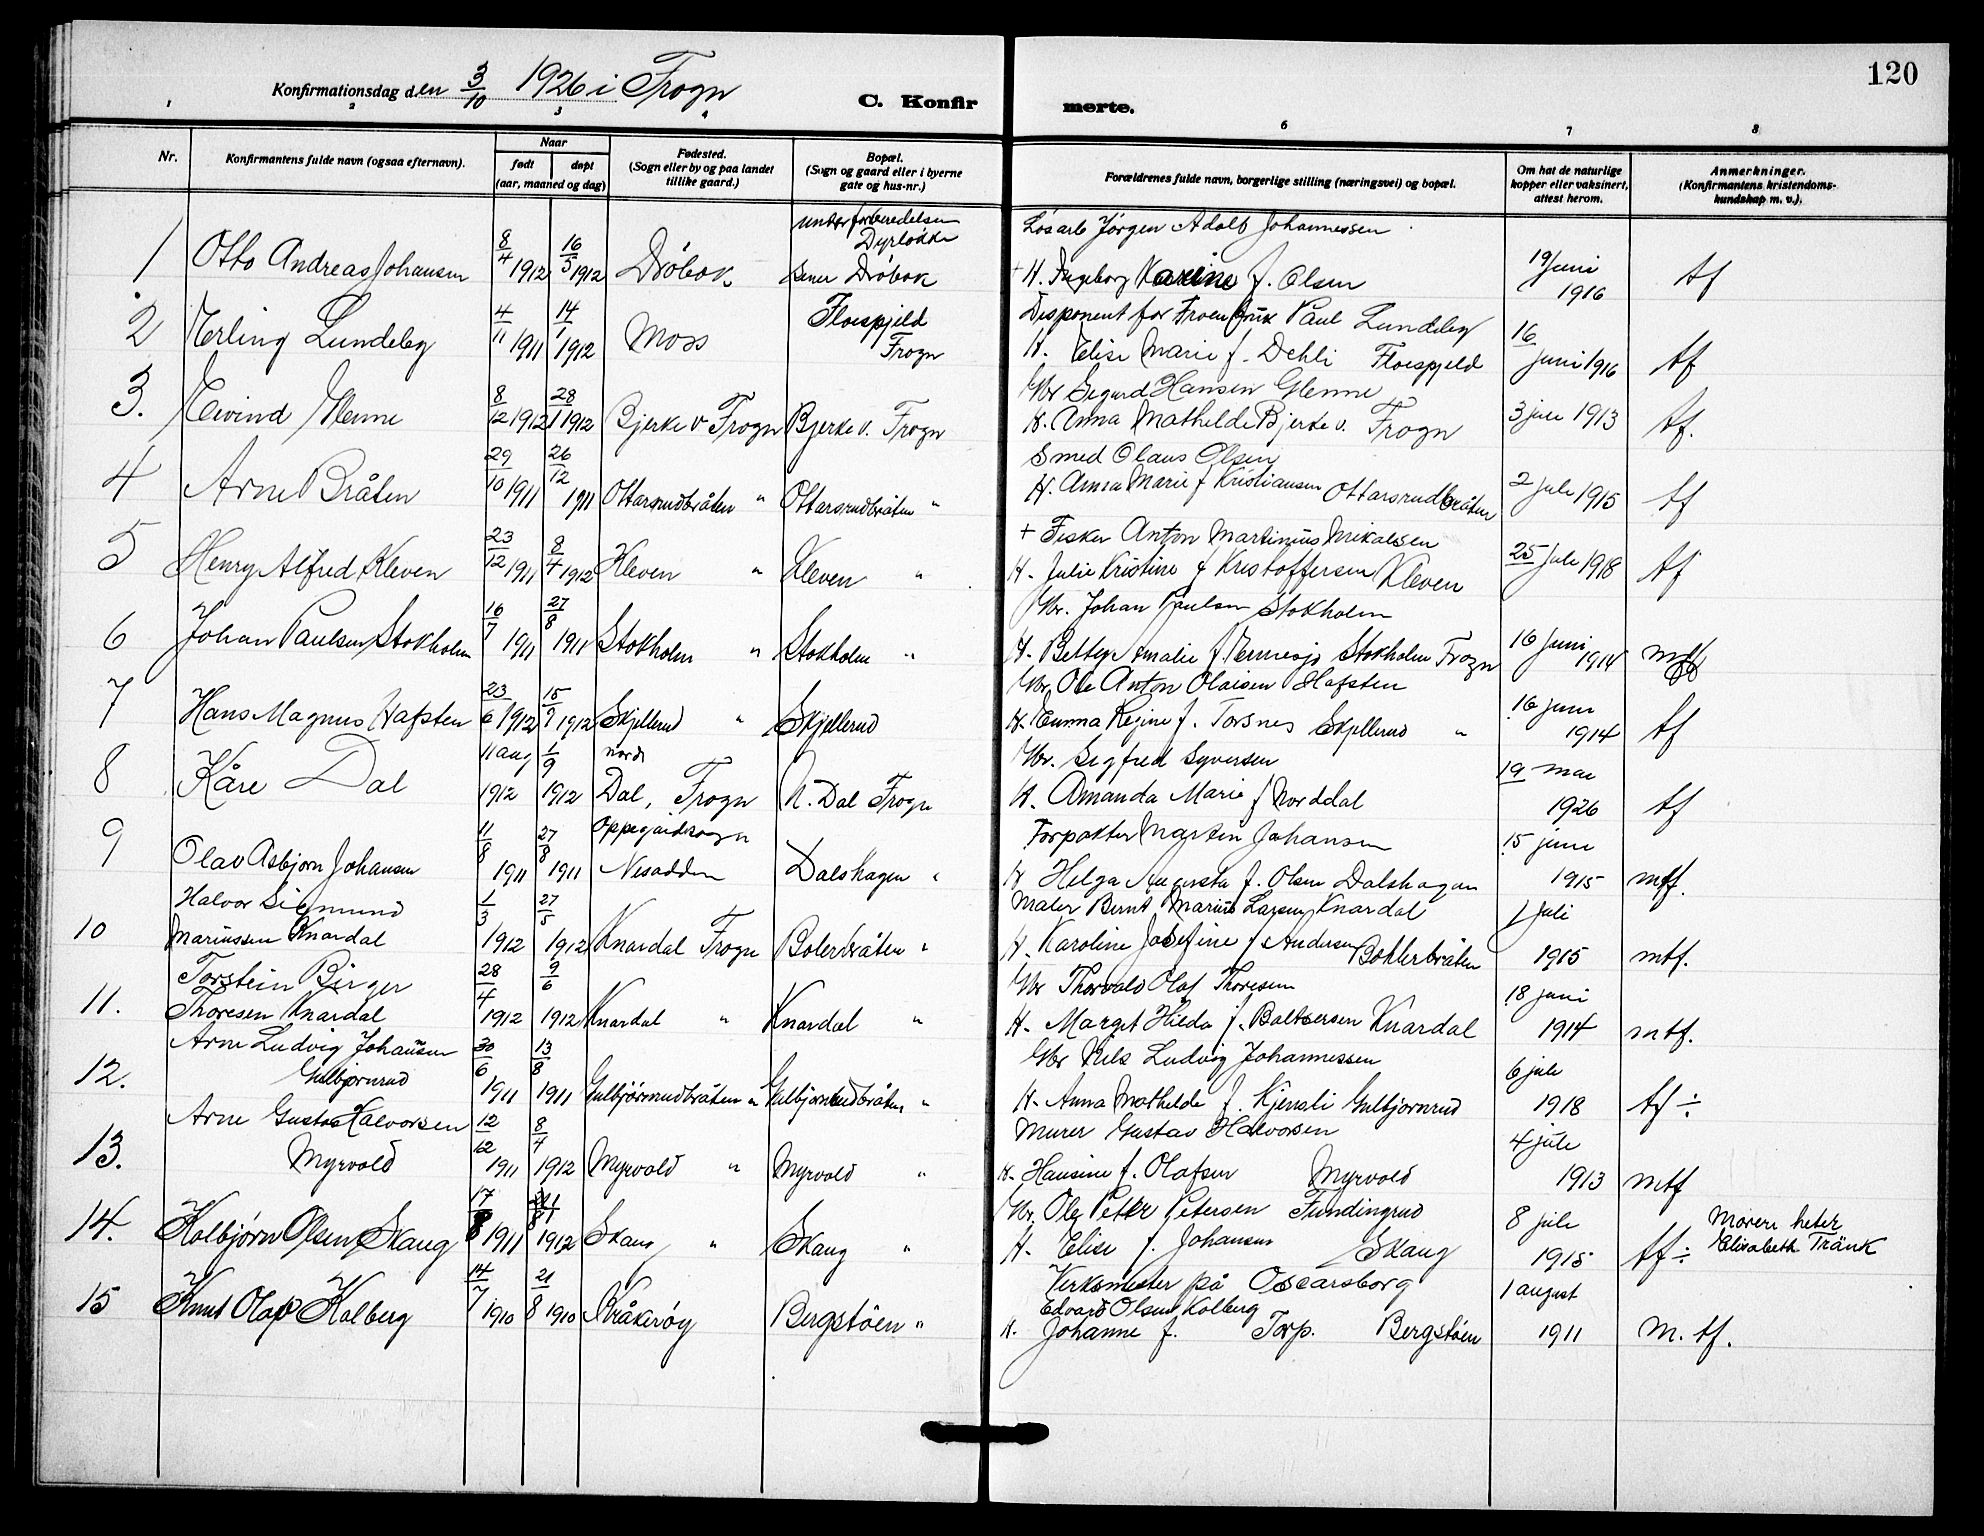 120
Konfirmationsdag den 3/10 1926 i Frogn
C. Konfirmerte.
1 2 3 4 6 7 8
Nr. Konfirmantens fulde navn (ogsaa efternavn). Naar født døpt (aar, maaned og dag) Fødested. (Sogn eller by og paa landet tillike gaard.) Bopæl. (Sogn og gaard eller i byerne gate og hus-nr.) Forældrenes fulde navn, borgerlige stilling (næringsvei) og bopæl. Om hat de naturlige kopper eller vaksinert, attest herom. Anmerkninger. (Konfirmantens kristendomskundskap m. v.).
under forberedelsen Dyrløkke Løsarb Jørgen Adolf Johannessen
1 Otto Andreas Johansen 8/4 1912 16/5 1912 Dröbak senere Dröbak + H. Ingeborg Karine f. Olsen 19 juni 1916 tf
2 Erling Lundeby 4/11 1911 14/1 1912 Moss Floespjeld Frogn Disponent for Froen Bruk Paul Lundeby
H. Elise Marie f. Dehli Floespjeld 16 juni 1916 tf
3. Eivind Glenne 8/12 1912 28/1 1912 Bjerke v Frogn Bjerke v. Frogn Gbr Sigurd Hansen Glenne
H. Anna Mathilde Bjerke v. Frogn 3 juli 1913 tf.
4 Arne Bråten 29/10 1911 26/12 1911 Ottarsrudbråten " Ottarsrudbråten " Smed Olaus Olsen
H. Anna Marie f Kristiansen Ottarsrudbråten 2 juli 1915 tf
5 Henry Alfred Kleven 23/12 1911 8/4 1912 Kleven " Kleven " + Fisker Anton Martinius Mikalsen
H. Julie Kristine f Kristoffersen Kleven 25 juli 1918 tf
6 Johan Paulsen Stokholm 16/7 1911 27/8 1911 Stokholm " Stokholm " Gbr. Johan Paulsen Stokholm
H. Betty Amalie f. Stokholm Frogn 16 juni 1914 mtf
7 Hans Magnus Hafsten 23/6 1912 15/9 1912 Skjellerud " Skjellerud Gbr. Ole Anton Olaisen Hafsten
H. Emma Regine f. Torsnes Skjellerud " 16 juni 1914 tf
8 Kåre Dal 11 aug 1912 1/9 1912 nord Dal, Frogn N. Dal Frogn Gbr. Sigfred Syversen
H. Amanda Marie f Norddal 19 mai 1926 tf
9 Olav Asbjørn Johansen 11/8 1911 27/8 1911 Oppegårdsogn Nesodden Dalshagen " Forpakter Martin Johansen
H Helga Augusta f. Olsen Dalshagen 15 juni 1915 mtf.
10 Halvor Sigmund Mariussen Knardal 1/3 1912 27/5 1912 Knardal Frogn Bolerbråten " Maler Bernt Marius Larsen Knardal
H. Karoline Josefine f. Andersen Bohlerbråten 1 juli 1915 mtf.
11. Torstein Birger Thoresen Knardal 28/4 1912 9/6 1912 Knardal " Knardal " Gbr Thorvald Olaf Thoresen
H. Marget Hilda f. Baltsersen Knardal 18 juni 1914 mtf.
12. Arne Ludvig Johansen Gulbjørnrud 30/6 1911 13/8 1911 Gulbjörnrudbråten " Gulbjörnrudbråten " Gbr Nils Ludvig Johannessen
H. Anna Mathilde f. Kjensli Gulbjørnrud 6 juli 1918 tf ÷
13. Arne Gustav Halvorsen Myrvold 12/12 1911 8/4 1912 Myrvold " Myrvold " Murer Gustav Halvorsen
H. Hansine f. Olafsen Myrvold 4 juli 1913 mtf
14. Kolbjørn Olsen Skaug 17/8 1911 1912 Skaug " Skaug " Gbr. Ole Peter Petersen Fundingrud
H. Elise f. Johansen Skaug 8 juli 1915 tf ÷ Moren heter Elisabeth Tränk
15 Knut Olaf Kolberg 14/7 1910 21/8 1910 Kråkerøy Bergstöen " Verksmester på Oscarsborg
Edvard Olsen Kolberg
H. Johanne f. Torp. Bergstöen 1 august 1911 M. tf.